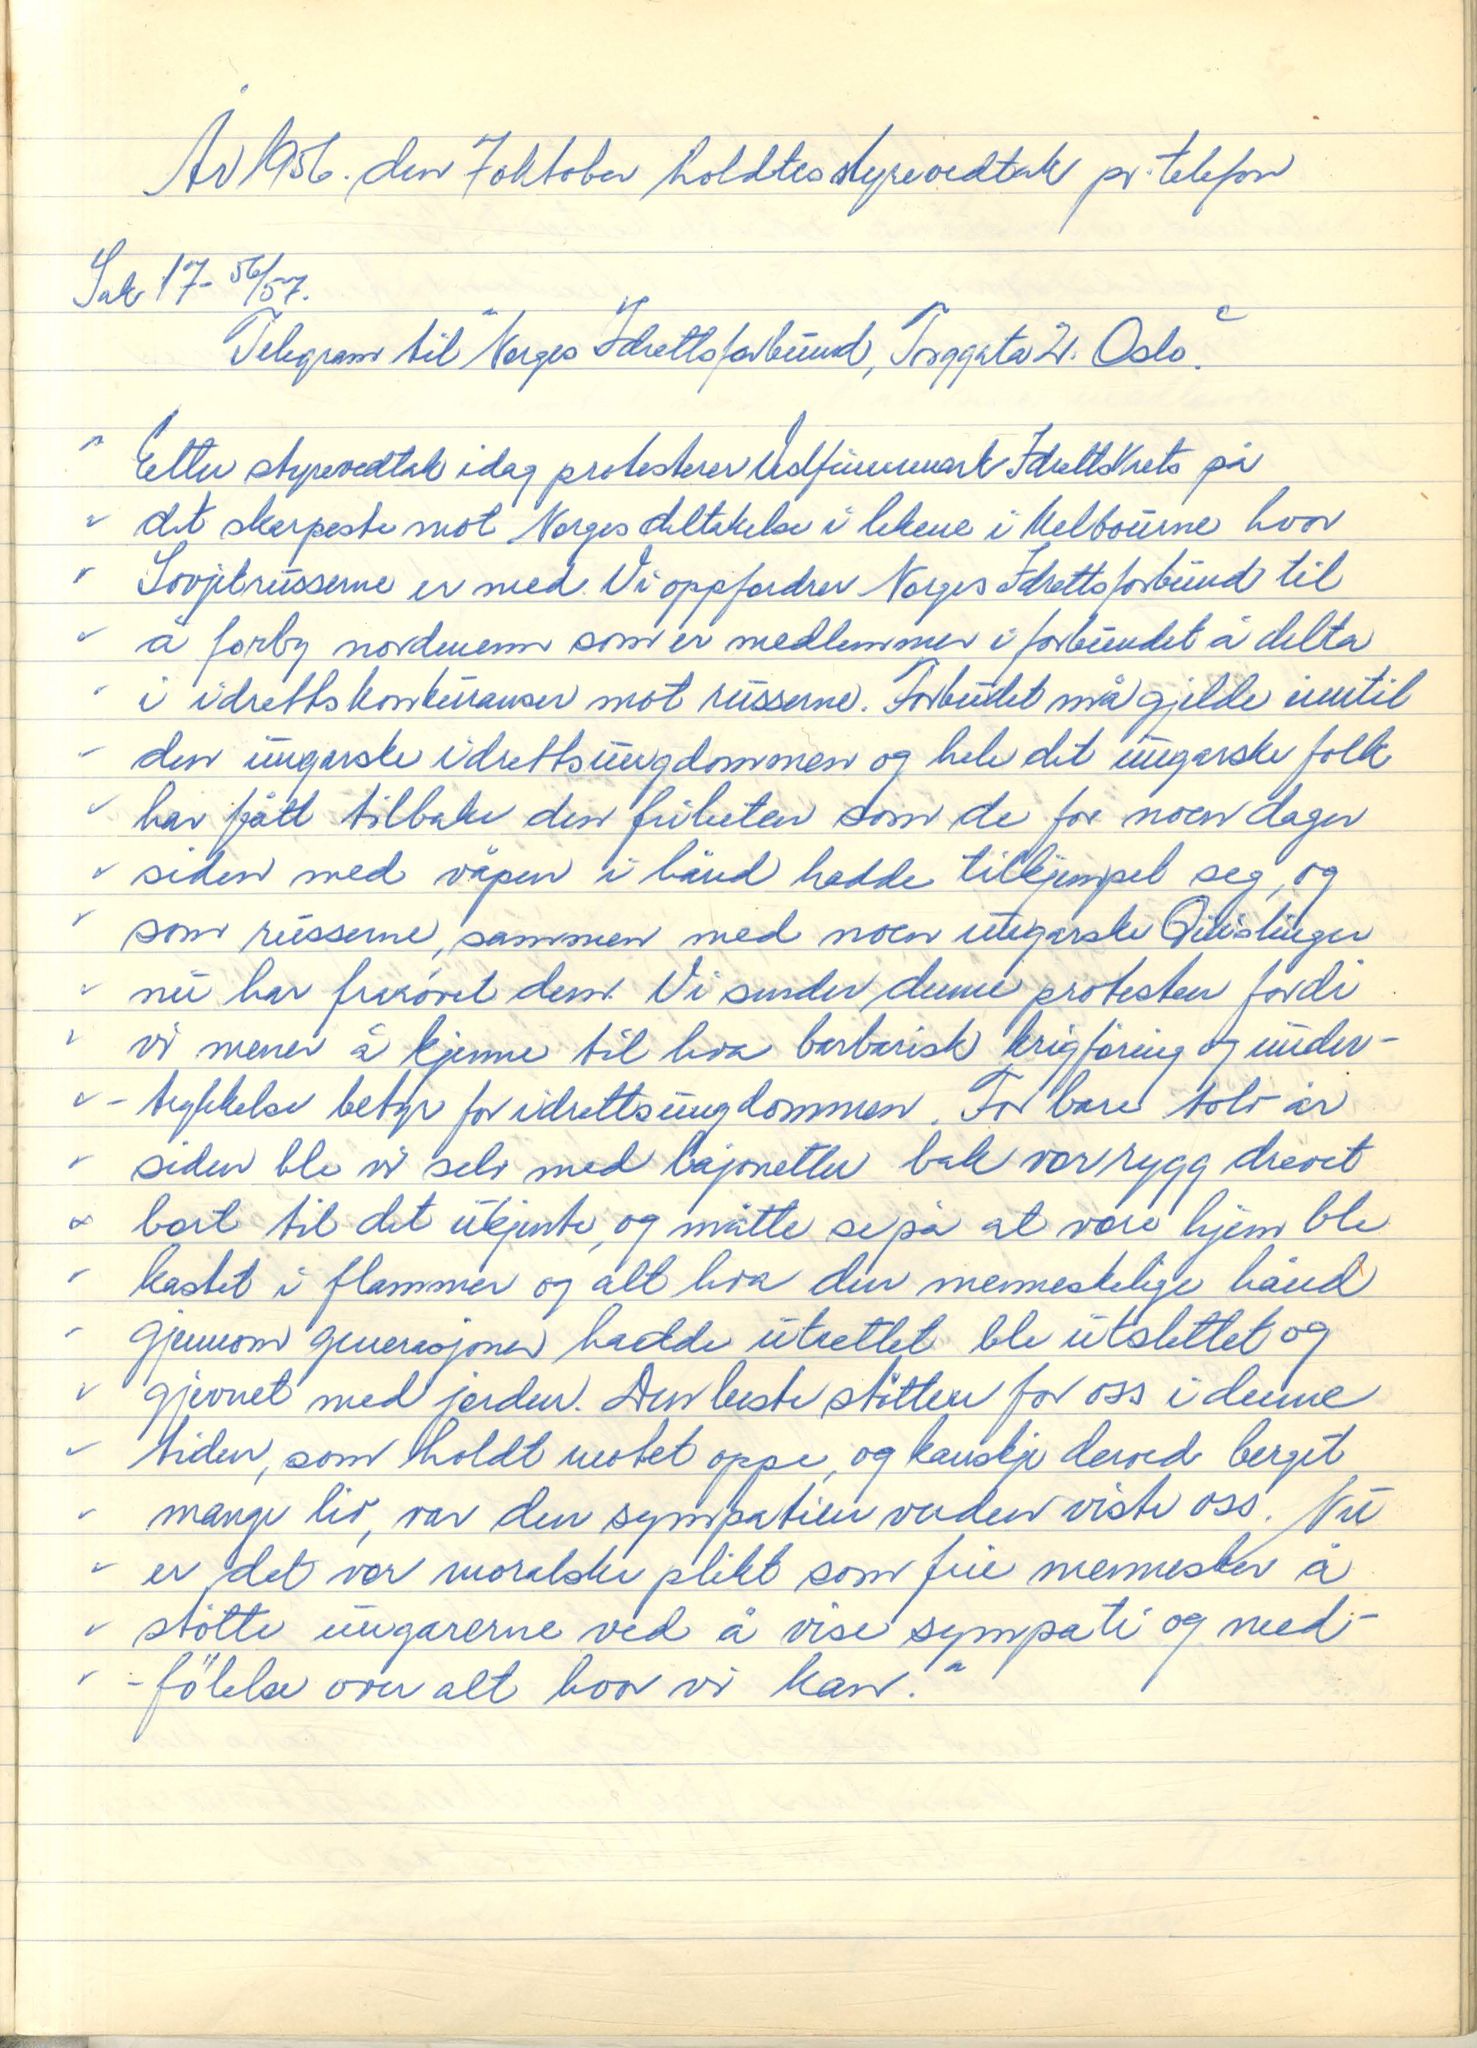 År 1956. den 7 oktober holdtes styrevedtak pr. telefon
Sak 17- 56/57.
Telegram til "Norges Idrettsforbund, Torggata 2. Oslo."
" Etter styrevedtak idag protesterer Vestfinnmark Idrettskrets på
" det skarpeste mot Norges deltakelse i lekene i Melbourne hvor
" Sovjetrusserne er med. Vi oppfordrer Norges Idrettsforbund til
" å forby nordmenn som er medlemmer i forbundet å delta
" i idrettskonkuranser mot russerne. Forbudet må gjelde inntil
" den ungarske idrettsungdommen og hele det ungarske folk
" har fått tilbake den friheten som de for noen dager
" siden med våpen i hånd hadde tilkjempet seg, og
" som russerne, sammen med noen ungarske Quislinger
" nu har frarøvet dem. Vi sender denne protesten fordi
" vi mener å kjenne til hva barbarisk krigføring og under-
" - trykkelse betyr for idrettsungdommen. For bare tolv år
" siden ble vi selv med bajonetter bak vor rygg drevet
" bort til det ukjente, og måtte se på at vore hjem ble
" kastet i flammer og alt hva den menneskelige hånd
" gjennom generasjoner hadde utrettet ble utslettet og
" gjevnet med jorden. Den beste støtten for oss i denne
" tiden, som holdt motet oppe, og kanskje derved berget
" mange liv, var den sympatien verden viste oss. Nu
" er det vor moralske plikt som frie mennesker å
" støtte ungarerne ved å vise sympati og med-
" - følelse over alt hvor vi kan."